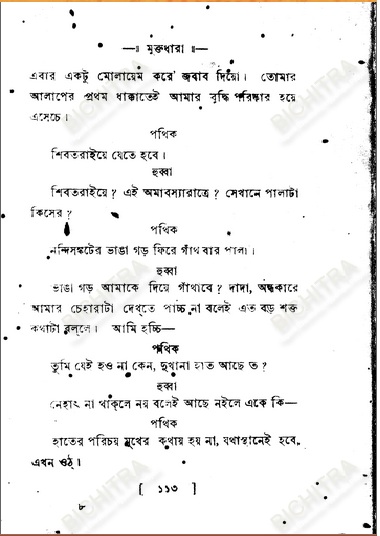 —॥ মুক্তধারা ॥—
এবার একটু মোলায়েম করে জবাব দিয়ো। তোমার
আলাপের প্রথম ধাক্কাতেই আমার বুদ্ধি পরিষ্কার হয়ে
এসেচে।
পথিক
শিবতরাইয়ে যেতে হবে।
হুব্বা
শিবতরাইয়ে? এই অমাবস্যারাত্রে? সেখানে পালাটা
কিসের?
পথিক
নন্দিসঙ্কটের ভাঙা গড় ফিরে গাঁথবার পালা।
হুব্বা
ভাঙা গড় আমাকে দিয়ে গাঁথাবে? দাদা, অন্ধকারে
আমার চেহারাটা দেখ্‌তে পাচ্চ না বলেই এত বড় শক্ত
কথাটা বল্‌লে। আমি হচ্চি—
পথিক
তুমি যেই হও না কেন, দুখানা হাত আছে ত?
হুব্বা
নেহাৎ না থাক্‌লে নয় বলেই আছে নইলে একে কি—
পথিক
হাতের পরিচয় মুখের কথায় হয় না, যথাস্থানেই হবে,
এখন ওঠ্‌॥
[ ১১৩ ]
৮
BICHITRA
BICHITRA
BICHITRA
BICHITRA
BICHITRA
BICHITRA